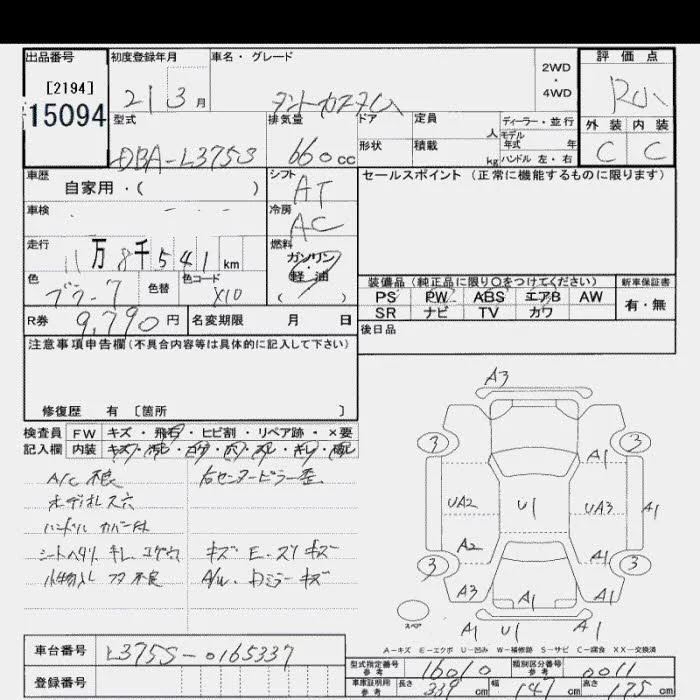 出品番号 初度登録年月 車名・グレード 2WD・4WD 評価点
[2194] 15094 21 3月 タントカスタム
外装 内装
C C
型式 DBA-L375S 排気量 660cc
ドア 定員 人 ディーラー・並行
モデル年式 年
形状 積載 kg ハンドル 左・右
車歴 自家用・( ) シフト AT
セールスポイント (正常に機能するものに限ります)
車検 冷房 AC
走行 11万8千541km 燃料 ガソリン・軽油 ( )
色 色替 色コード X10
装備品 (純正品に限り〇をつけてください) 新車保証書
PS PW ABS エアB AW 有・無
SR ナビ TV カワ
R券 9,790円 名変期限 月 日
後日品
注意事項申告欄 (不具合内容等は具体的に記入して下さい)
修復歴 有 [箇所 ]
検査員 FW キズ・飛石・ヒビ割・リペア跡・×要
記入欄 内装
A/C 不良 右センターピラー歪
オーディオレス穴
ハンドル カバー付
シートヘタリ キレ コゲ穴 キズ E・スリキズ
小物入レ フタ 不良 A/W・Dミラー キズ
A3
3 3
A1
UA2 U1 UA3 A1
A2 A1
3 3
A3 A1 A1
スペア
A1 U1 A1
A-キズ E-エクボ U-凹み W-補修跡 S-サビ C-腐食 XX-交換済
車台番号 L375S-0165337
型式指定番号 参考 16010 類別区分番号 参考 0011
登録番号
車庫証明用 参考 長さ 339cm 幅 147cm 高さ 175cm